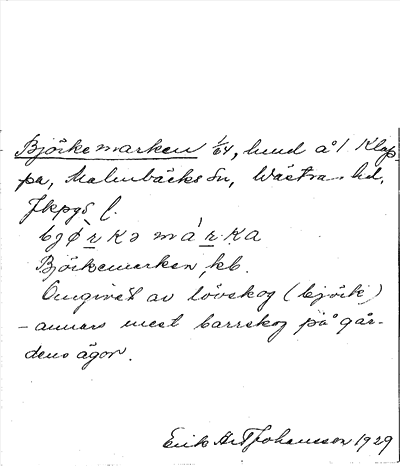 Björkemarken 1/64, lund å 1 Klap
pa, Malmbäcks sn, Västra hd,
Jkpgs l.
bjø̀rkə má́rka
Björkemarken, kb.
Omgivet av lövskog (björk)
– annars mest barrskog på går-
dens ägor.
Erik Art Johansson 1929